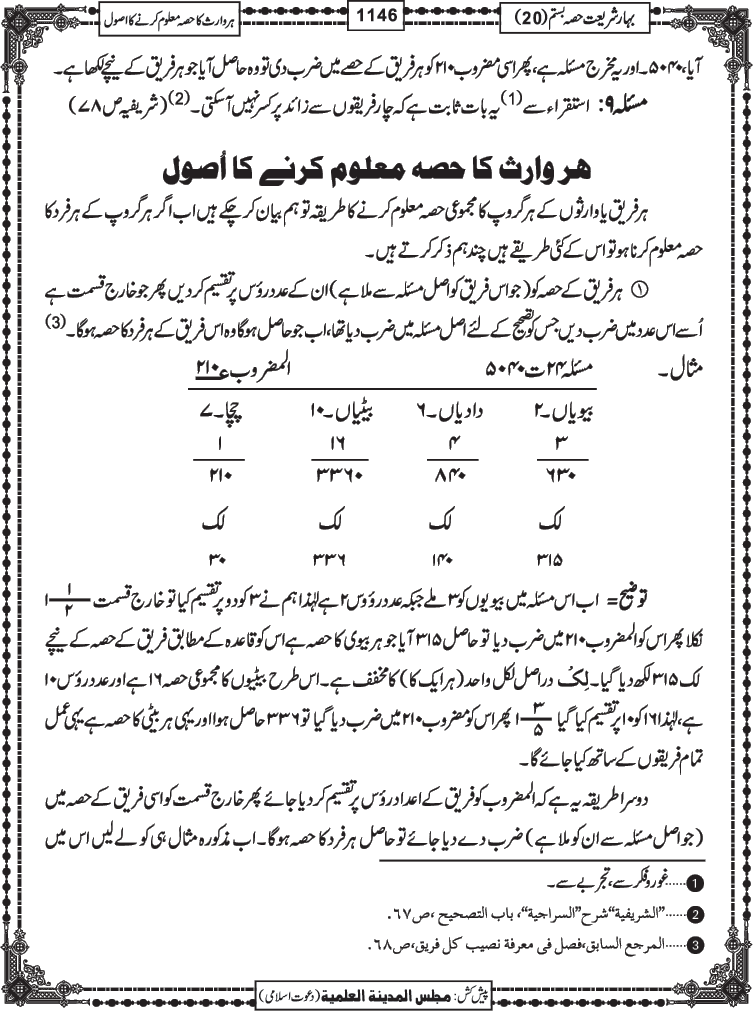 بہار شریعت حصہ بستم (20)
1146
ہر وارث کا حصہ معلوم کرنے کا اصول
آیا، ۵۰۴۰۔ اور یہ مخرج مسئلہ ہے، پھر اسی مضروب ۲۱۰ کو ہر فریق کے حصے میں ضرب دی تو وہ حاصل آیا جو ہر فریق کے نیچے لکھا ہے۔
مسئلہ ۹: استقراء سے (1) یہ بات ثابت ہے کہ چار فریقوں سے زائد پر کسر نہیں آسکتی۔ (2) (شریفیہ ص ۷۸)
ہر وارث کا حصہ معلوم کرنے کا اُصول
ہر فریق یا وارثوں کے ہر گروپ کا مجموعی حصہ معلوم کرنے کا طریقہ تو ہم بیان کر چکے ہیں اب اگر ہر گروپ کے ہر فرد کا
حصہ معلوم کرنا ہو تو اس کے کئی طریقے ہیں چند ہم ذکر کرتے ہیں۔
① ہر فریق کے حصہ کو (جو اس فریق کو اصل مسئلہ سے ملا ہے) ان کے عدد رؤس پر تقسیم کر دیں پھر جو خارج قسمت ہے
اُسے اس عدد میں ضرب دیں جس کو تصحیح کے لئے اصل مسئلہ میں ضرب دیا تھا، اب جو حاصل ہوگا وہ اس فریق کے ہر فرد کا حصہ ہوگا۔ (3)
مثال۔ مسئلہ ۲۴ ت ۵۰۴۰ المضروب ۲۱۰
بیویاں۔۲ دادیاں۔۶ بیٹیاں۔۱۰ چچا۔۷
۳ ۴ ۱۶ ۱
۶۳۰ ۸۴۰ ۳۳۶۰ ۲۱۰
لک لک لک لک
۳۱۵ ۱۴۰ ۳۳۶ ۳۰
توضیح= اب اس مسئلہ میں بیویوں کو ۳ ملے جبکہ عدد رؤوس ۲ ہے لہٰذا ہم نے ۳ کو دو پر تقسیم کیا تو خارج قسمت ۱ ۱/۲
نکلا پھر اس کو المضروب ۲۱۰ میں ضرب دیا تو حاصل ۳۱۵ آیا جو ہر بیوی کا حصہ ہے اس کو قاعدہ کے مطابق فریق کے حصہ کے نیچے
لک ۳۱۵ لکھ دیا گیا۔ لِکُ دراصل لکل واحد (ہر ایک کا) کا مخفف ہے۔ اس طرح بیٹیوں کا مجموعی حصہ ۱۶ ہے اور عدد رؤس ۱۰
ہے، لہٰذا ۱۶ کو ۱۰ پر تقسیم کیا گیا ۱ ۳/۵ پھر اس کو مضروب ۲۱۰ میں ضرب دیا گیا تو ۳۳۶ حاصل ہوا اور یہی ہر بیٹی کا حصہ ہے یہی عمل
تمام فریقوں کے ساتھ کیا جائے گا۔
دوسرا طریقہ یہ ہے کہ المضروب کو فریق کے اعداد رؤس پر تقسیم کر دیا جائے پھر خارج قسمت کو اسی فریق کے حصہ میں
(جو اصل مسئلہ سے ان کو ملا ہے) ضرب دے دیا جائے تو حاصل ہر فرد کا حصہ ہوگا۔ اب مذکورہ مثال ہی کو لے لیں اس میں
1......غور و فکر سے، تجربے سے۔
2......"الشریفیۃ" شرح "السراجیۃ"، باب التصحیح، ص۶۷.
3......المرجع السابق، فصل فی معرفۃ نصیب کل فریق، ص۶۸.
پیش کش: مجلس المدینۃ العلمیۃ (دعوت اسلامی)